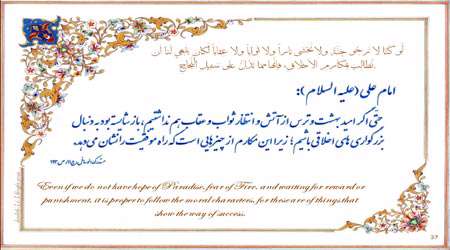 لو كنا لا نرجو جنة ولا نخشى ناراً ولا ثواباً ولا عقاباً لكان ينبغي لنا أن
نطالب بمكارم الأخلاق، فإنها مما تدل على سبيل النجاح
امام علی (علیه السلام):
حتی اگر امید بهشت و ترس از آتش و انتظار ثواب و عقاب هم نداشتیم، باز شایسته بود به دنبال
بزرگواری های اخلاقی باشیم؛ زیرا این مکارم از چیزهایی است که راه موفقیت را نشان می دهد.
Even if we do not have hope of Paradise, fear of Fire, and waiting for reward or
punishment, it is proper to follow the moral characters, for these are of things that
show the way of success.
27